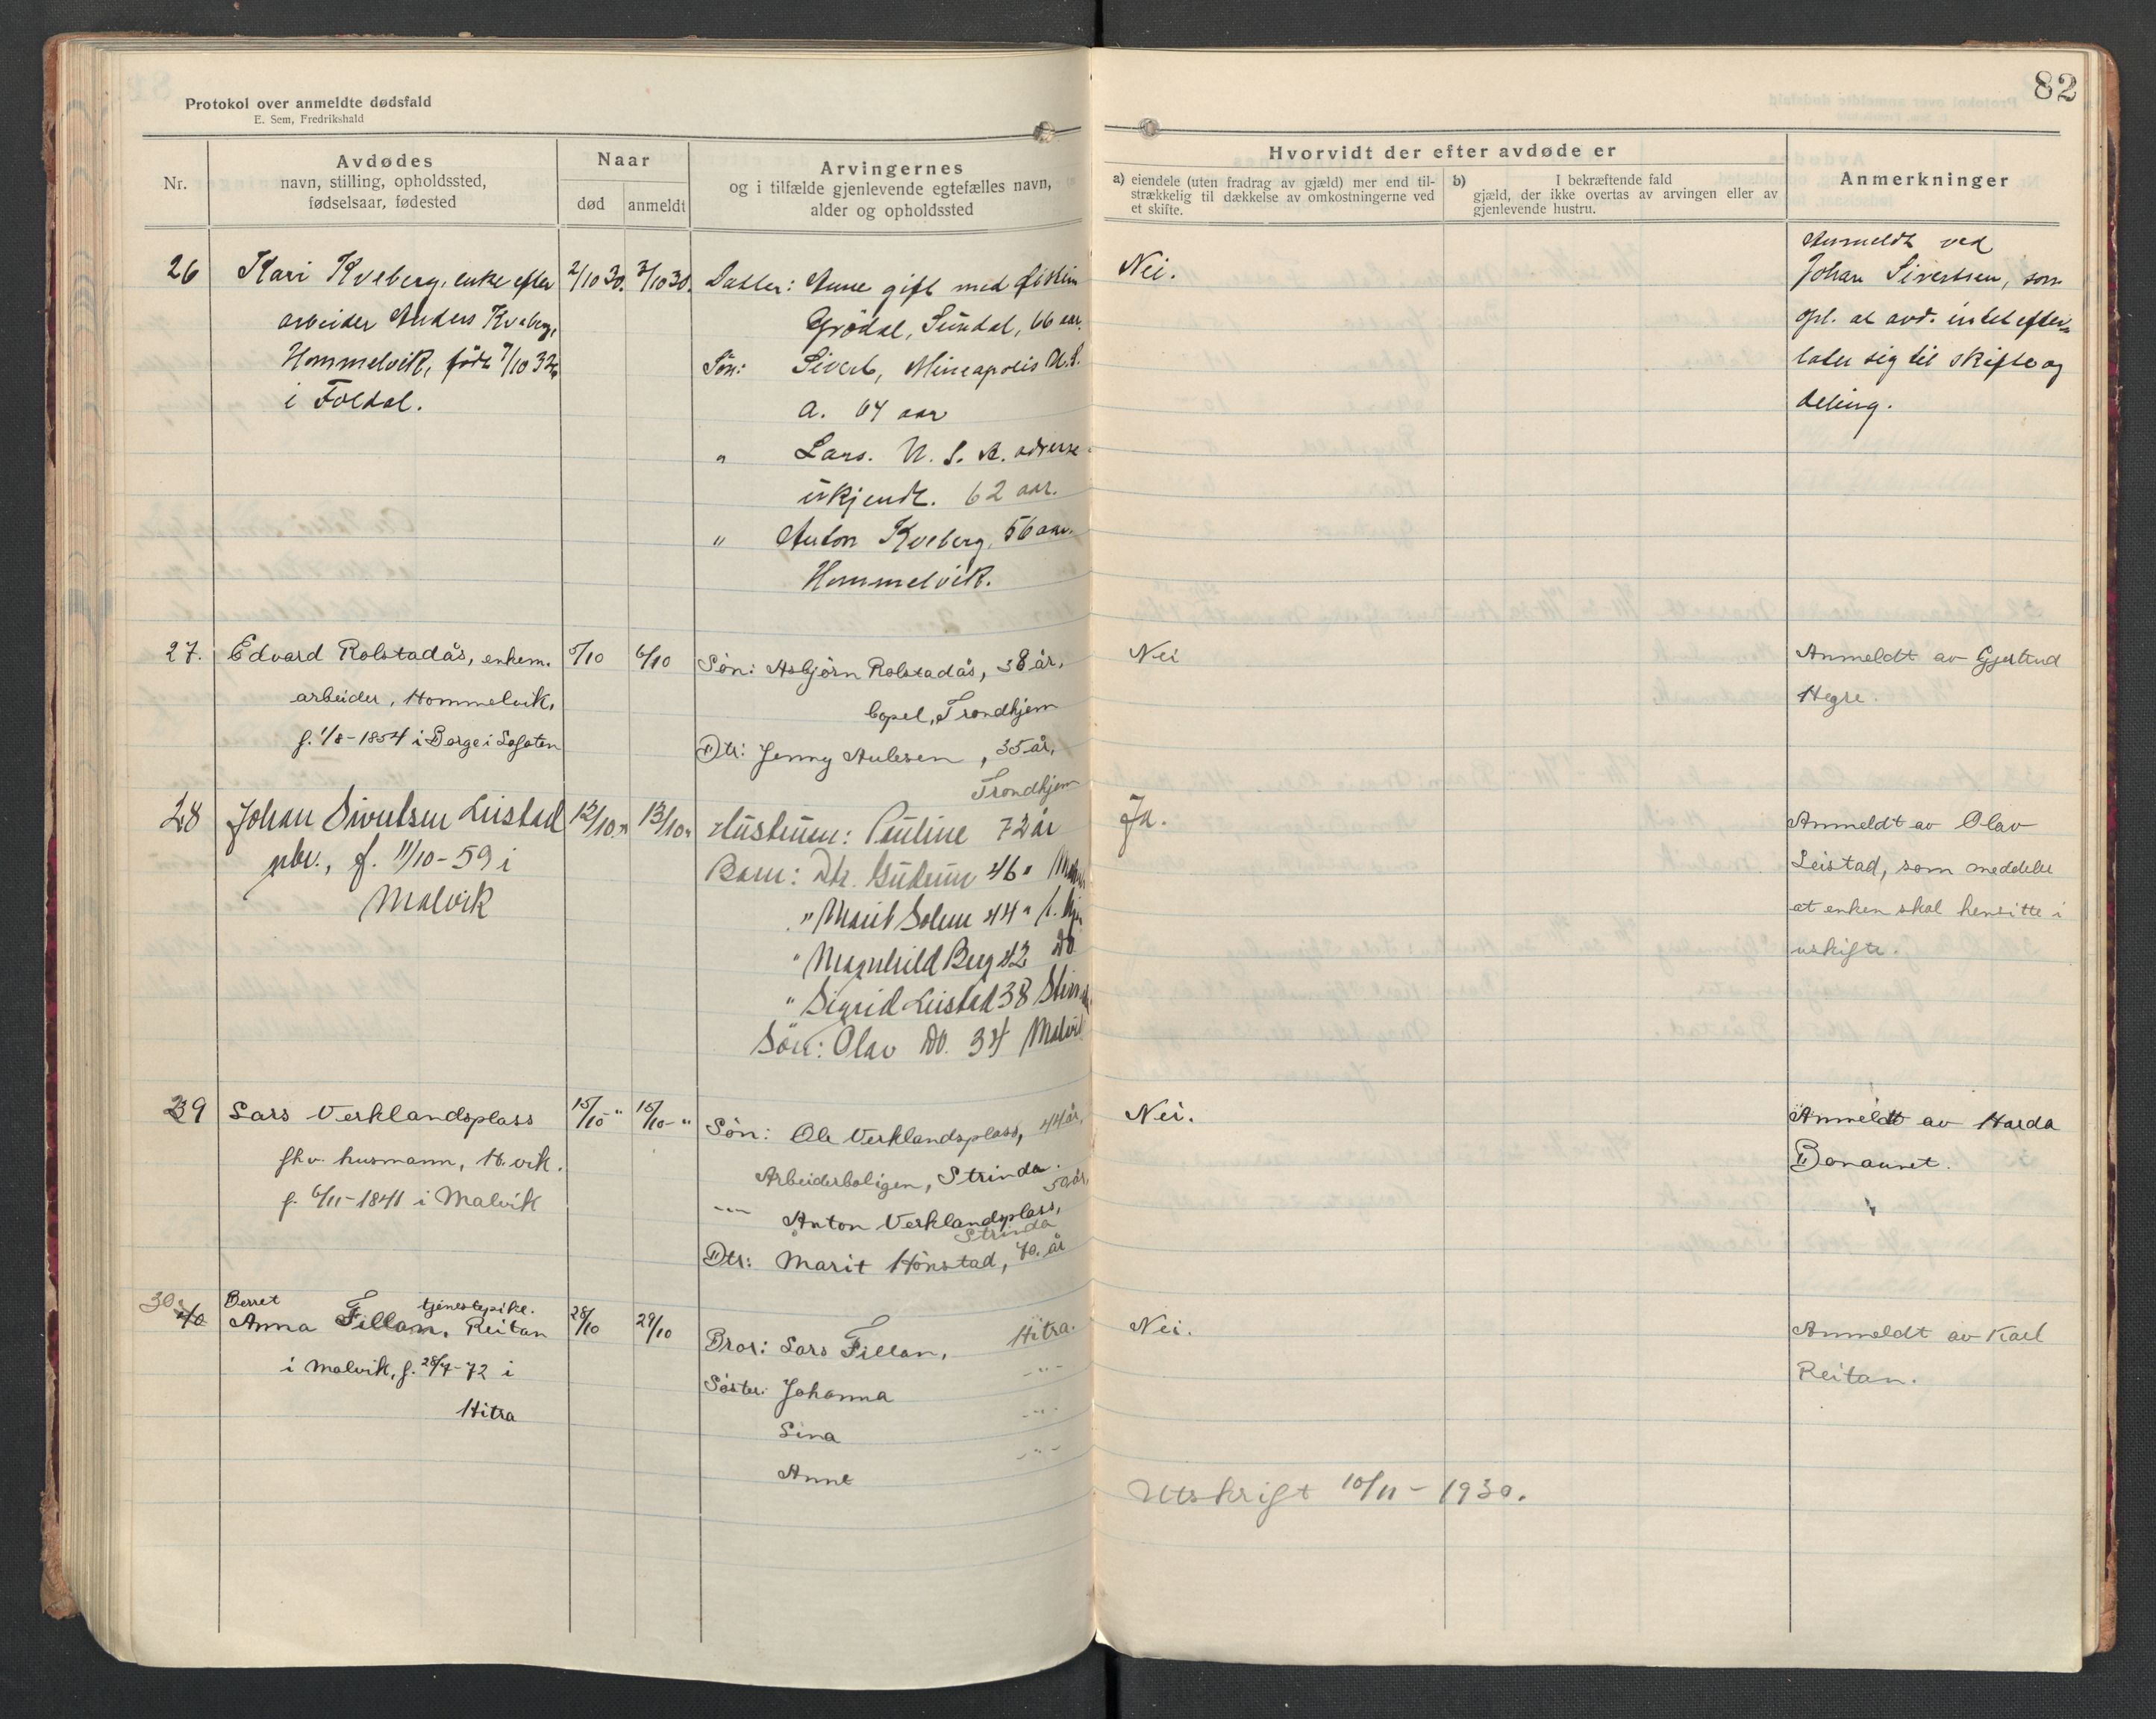 82
Protokol over anmeldte dødsfald
E. Sem, Fredrikshald
Nr.
Avdødes
navn, stilling, opholdssted,
fødselsaar, fødested
Naar
død
anmeldt
Arvingernes
og i tilfælde gjenlevende egtefælles navn,
alder og opholdssted
Hvorvidt der efter avdøde er
a) eiendele (uten fradrag av gjæld) mer end til-
strækkelig til dækkelse av omkostningerne ved
et skifte.
b) I bekræftende fald
gjæld, der ikke overtas av arvingen eller av
gjenlevende hustru.
Anmerkninger
26 Kari Kveberg, enke efter
arbeider Anders Kveberg,
Hommelvik, født 7/10 32
i Foldal.
2/10 30. 3/10 30.
Datter: Anne gift med
Grødal, Sundal, 66 aar.
Søn: Sivert, Mineapolis U.S.
A. 64 aar
" Lars. U. S. A. adresse
ukjendt. 62 aar.
" Anton Kveberg, 56 aar.
Hommelvik.
Nei.
Anmeldt ved
Johan Sivertsen, som
opl. at avd. intet efter-
later sig til skifte og
deling.
27. Edvard Rolstadås, enkem.
arbeider, Hommelvik,
f. 1/8-1854 i Borge i Lofoten
5/10 6/10
Søn: Asbjørn Rolstadås, 38 år,
Trondhjem
Dtr: Jenny Aulesen, 35 år,
Trondhjem
Nei
Anmeldt av Gjertrud
Hegre.
28 Johan Sivertsen Leistad
f. 11/10-59 i
Malvik
12/10 " 13/10 "
Hustruen: Pauline 72 år
Barn: Dtr. Gudrun 46 "
" Marit Solem 44 "
" Magnhild Berg 42 do
" Sigrid Leistad 38
Søn: Olav do. 34 Malvik
Ja.
Anmeldt av Olav
Leistad, som meddeler
at enken skal hensitte i
uskifte.
29 Lars Verklandsplass
fhv. husmann, H.vik.
f. 6/11-1841 i Malvik
15/10-" 15/10-"
Søn: Ole Verklandsplass, 44 år,
Arbeiderboligen, Strinda.
-"- Anton Verklandsplass, 50 år,
Strinda
Dtr: Marit Hønstad, 40. år
Nei.
Anmeldt av Harda
Bonaunet.
30
Berret tjenestepike.
Anna Fillan, Reitan
i Malvik, f. 28/7-72 i
Hitra
28/10 29/10
Bror: Lars Fillan, Hitra.
Søster: Johanna -"-
Sina -"-
Anne -"-
Nei.
Anmeldt av Karl
Reitan.
Utskrift 10/11-1930.